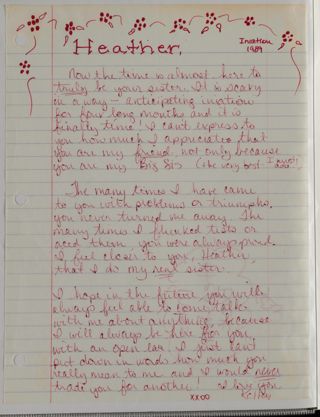 Heather,
Initiation
1989
Now the time is almost here to
truly be your sister. It is so scary
in a way - anticipating initiation
for four long months and it is
finally time! I can't express to
you how much I appreciate that
you are my friend, not only because
you are my "Big Sis" (the very best I might
add)
The many times I have came
to you with problems or triumphs,
you never turned me away. The
many times I flunked tests or
aced them, you were always proud.
I feel closer to you, Heather,
that I do my real sister.
I hope in the future you will
always feel able to come talk
with me about anything, because
I will always be here for you
with an open ear. I just can't
put down in words how much you
really mean to me and I would never
trade you for another! I love you
xxoo